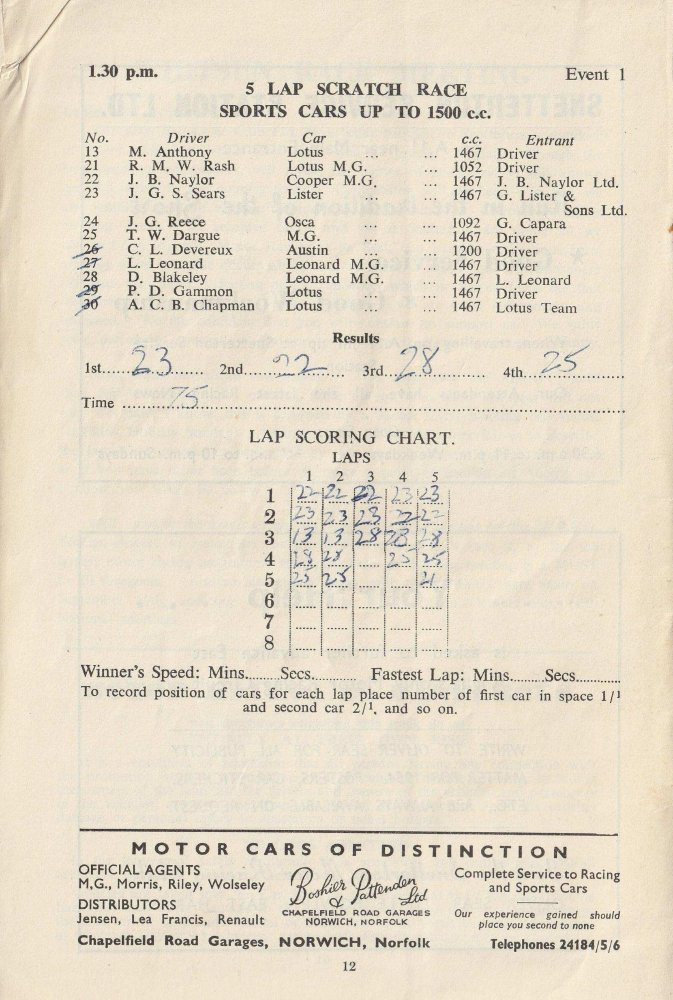 1.30 p.m. Event 1
5 LAP SCRATCH RACE
SPORTS CARS UP TO 1500 c.c.
No. Driver Car c.c. Entrant
13 M. Anthony Lotus ... ... 1467 Driver
21 R. M. W. Rash Lotus M.G. ... 1052 Driver
22 J. B. Naylor Cooper M.G. ... 1467 J. B. Naylor Ltd.
23 J. G. S. Sears Lister ... 1467 G. Lister &
Sons Ltd.
24 J. G. Reece Osca ... ... 1092 G. Capara
25 T. W. Dargue M.G. ... ... 1467 Driver
26 C. L. Devereux Austin ... ... 1200 Driver
27 L. Leonard Leonard M.G. ... 1467 Driver
28 D. Blakeley Leonard M.G. ... 1467 L. Leonard
29 P. D. Gammon Lotus ... ... 1467 Driver
30 A. C. B. Chapman Lotus ... ... 1467 Lotus Team
Results
1st...23... 2nd...22... 3rd...28... 4th...25...
Time ...75...
LAP SCORING CHART.
LAPS
1 2 3 4 5
1 22 22 22 23 23
2 23 23 23 22 22
3 13 13 28 28 28
4 28 28 25 25
5 25 25 21
6
7
8
Winner's Speed: Mins.........Secs............ Fastest Lap: Mins.........Secs............
To record position of cars for each lap place number of first car in space 1/1
and second car 2/1, and so on.
MOTOR CARS OF DISTINCTION
OFFICIAL AGENTS
M,G., Morris, Riley, Wolseley
DISTRIBUTORS
Jensen, Lea Francis, Renault
Boshier & Pattenden Ltd
CHAPELFIELD ROAD GARAGES
NORWICH, NORFOLK
Complete Service to Racing
and Sports Cars
Our experience gained should
place you second to none
Chapelfield Road Garages, NORWICH, Norfolk Telephones 24184/5/6
12